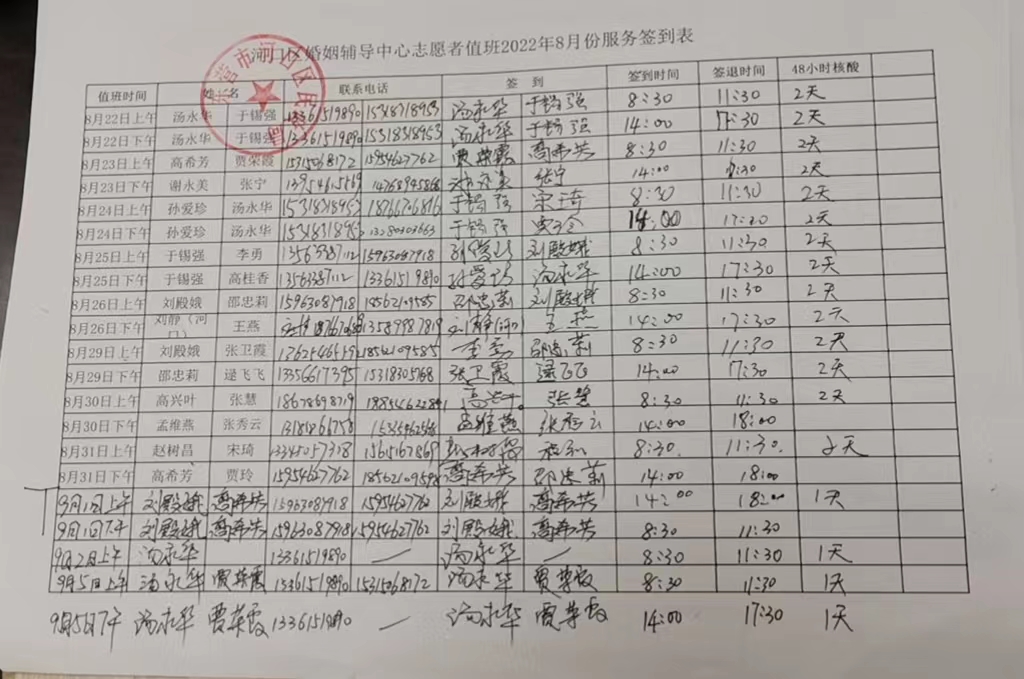 河口区婚姻辅导中心志愿者值班2022年8月份服务签到表
值班时间 姓名 联系电话 签 到 签到时间 签退时间 48小时核酸
8月22日上午 汤永华 于锡强 13361519890 15318318953 汤永华 于锡强 8:30 11:30 2天
8月22日下午 汤永华 于锡强 13361519890 15318318953 汤永华 于锡强 14:00 17:30 2天
8月23日上午 高希芳 贾荣霞 15315068172 15954627762 贾荣霞 高希芳 8:30 11:30 2天
8月23日下午 谢永美 张宁 张宁 14:00 2天
8月24日上午 孙爱珍 汤永华 15318318953 18766706816 于锡强 宋琦 8:30 11:30 2天
8月24日下午 孙爱珍 15318318953 于锡强 14:00 17:30 2天
8月25日上午 于锡强 李勇 15963087918 刘殿娥 8:30 11:30 2天
8月25日下午 于锡强 高桂香 13361519890 孙爱珍 汤永华 14:00 17:30 2天
8月26日上午 刘殿娥 邵忠莉 15963087918 18562109585 邵忠莉 刘殿娥 8:30 11:30 2天
8月26日下午 刘静（河口） 王燕 13589987819 刘静(河口) 王燕 14:00 17:30 2天
8月29日上午 刘殿娥 张卫霞 18562109585 李勇 邵忠莉 8:30 11:30 2天
8月29日下午 邵忠莉 逯飞飞 13356617395 15318305768 张卫霞 逯飞飞 14:00 17:30 2天
8月30日上午 高兴叶 张慧 18678698719 高兴叶 张慧 8:30 11:30 2天
8月30日下午 孟维燕 张秀云 孟维燕 张秀云 14:00 18:00
8月31日上午 赵树昌 宋琦 15651167869 8:30 11:30 2天
8月31日下午 高希芳 贾玲 15954627762 高希芳 邵忠莉 14:00 18:00
9月1日上午 刘殿娥 高希芳 15963087918 15954627762 刘殿娥 高希芳 14:00 18:00 1天
9月1日下午 刘殿娥 高希芳 15963087918 15954627762 刘殿娥 高希芳 8:30 11:30
9月2日上午 汤永华 13361519890 — 汤永华 — 8:30 11:30 1天
9月5日上午 汤永华 贾荣霞 13361519890 15315068172 汤永华 贾荣霞 8:30 11:30 1天
9月5日下午 汤永华 贾荣霞 13361519890 — 汤永华 贾荣霞 14:00 17:30 1天